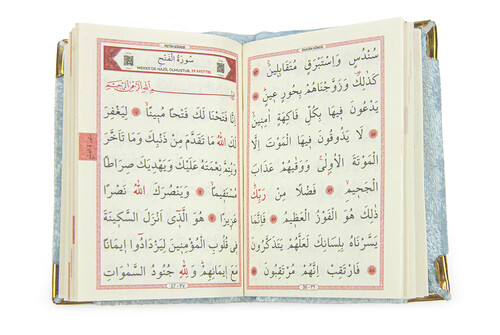 DUHÂN SÛRESİ
سُنْدُسٍ وَاِسْتَبْرَقٍ مُتَقَابِلٖينَۙ
كَذٰلِكَ وَزَوَّجْنَاهُمْ بِحُورٍ عٖينٍۜ
يَدْعُونَ فٖيهَا بِكُلِّ فَاكِهَةٍ اٰمِنٖينَۙ
لَا يَذُوقُونَ فٖيهَا الْمَوْتَ اِلَّا
الْمَوْتَةَ الْاُولٰىۚ وَوَقٰيهُمْ عَذَابَ
الْجَحٖيمِۙ فَضْلًا مِنْ رَبِّكَۜ
ذٰلِكَ هُوَ الْفَوْزُ الْعَظٖيمُ فَاِنَّمَا
يَسَّرْنَاهُ بِلِسَانِكَ لَعَلَّهُمْ يَتَذَكَّرُونَ
فَارْتَقِبْ اِنَّهُمْ مُرْتَقِبُونَ
36 - ٣٦
FETİH SÛRESİ
سُورَةُ الْفَتْحِ
MEKKE'DE NAZİL OLMUŞTUR, 29 AYETTİR.
بِسْمِ اللّٰهِ الرَّحْمٰنِ الرَّحٖيمِ
اِنَّا فَتَحْنَا لَكَ فَتْحًا مُبٖينًاۙ لِيَغْفِرَ
لَكَ اللّٰهُ مَا تَقَدَّمَ مِنْ ذَنْبِكَ وَمَا تَاَخَّرَ
وَيُتِمَّ نِعْمَتَهُ عَلَيْكَ وَيَهْدِيَكَ صِرَاطًا
مُسْتَقٖيمًاۙ وَيَنْصُرَكَ اللّٰهُ نَصْرًا
عَزٖيزًا هُوَ الَّذٖٓي اَنْزَلَ السَّكٖينَةَ
فٖي قُلُوبِ الْمُؤْمِنٖينَ لِيَزْدَادُٓوا اٖيمَانًا
مَعَ اٖيمَانِهِمْۜ وَلِلّٰهِ جُنُودُ السَّمٰوَاتِ
37 - ٣٧